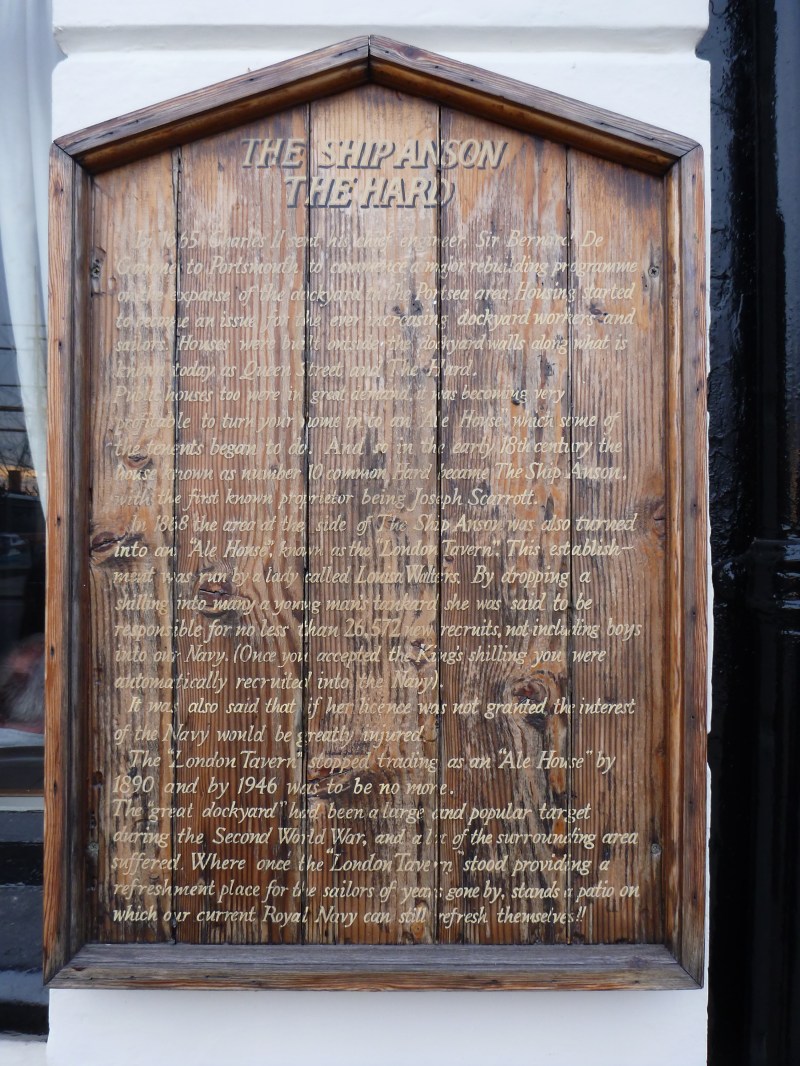 THE SHIP ANSON
THE HARD
In 1665 Charles II sent his chief engineer, Sir Bernard De
Gomme to Portsmouth to commence a major rebuilding programme
on the expanse of the dockyard in the Portsea area. Housing started
to become an issue for the ever increasing dockyard workers and
sailors. Houses were built outside the dockyard walls along what is
known today as Queen Street and The Hard.
Public houses too were in great demand, it was becoming very
profitable to turn your home in to an "Ale House" which some of
the tenents began to do. And so in the early 18th century the
house known as number 10 common Hard became The Ship Anson,
with the first known proprietor being Joseph Scarrott.
In 1868 the area at the side of The Ship Anson was also turned
into an "Ale House", known as the "London Tavern". This establish-
ment was run by a lady called Louisa Walters. By dropping a
shilling into many a young man's tankard she was said to be
responsible for no less than 26,572 new recruits, not including boys
into our Navy. (Once you accepted the King's shilling you were
automatically recruited into the Navy).
It was also said that if her licence was not granted the interest
of the Navy would be greatly injured.
The "London Tavern" stopped trading as an "Ale House" by
1890 and by 1946 was to be no more.
The great dockyard" had been a large and popular target
during the Second World War, and a lot of the surrounding area
suffered. Where once the "London Tavern" stood providing a
refreshment place for the sailors of years gone by, stands a patio on
which our current Royal Navy can still refresh themselves!!